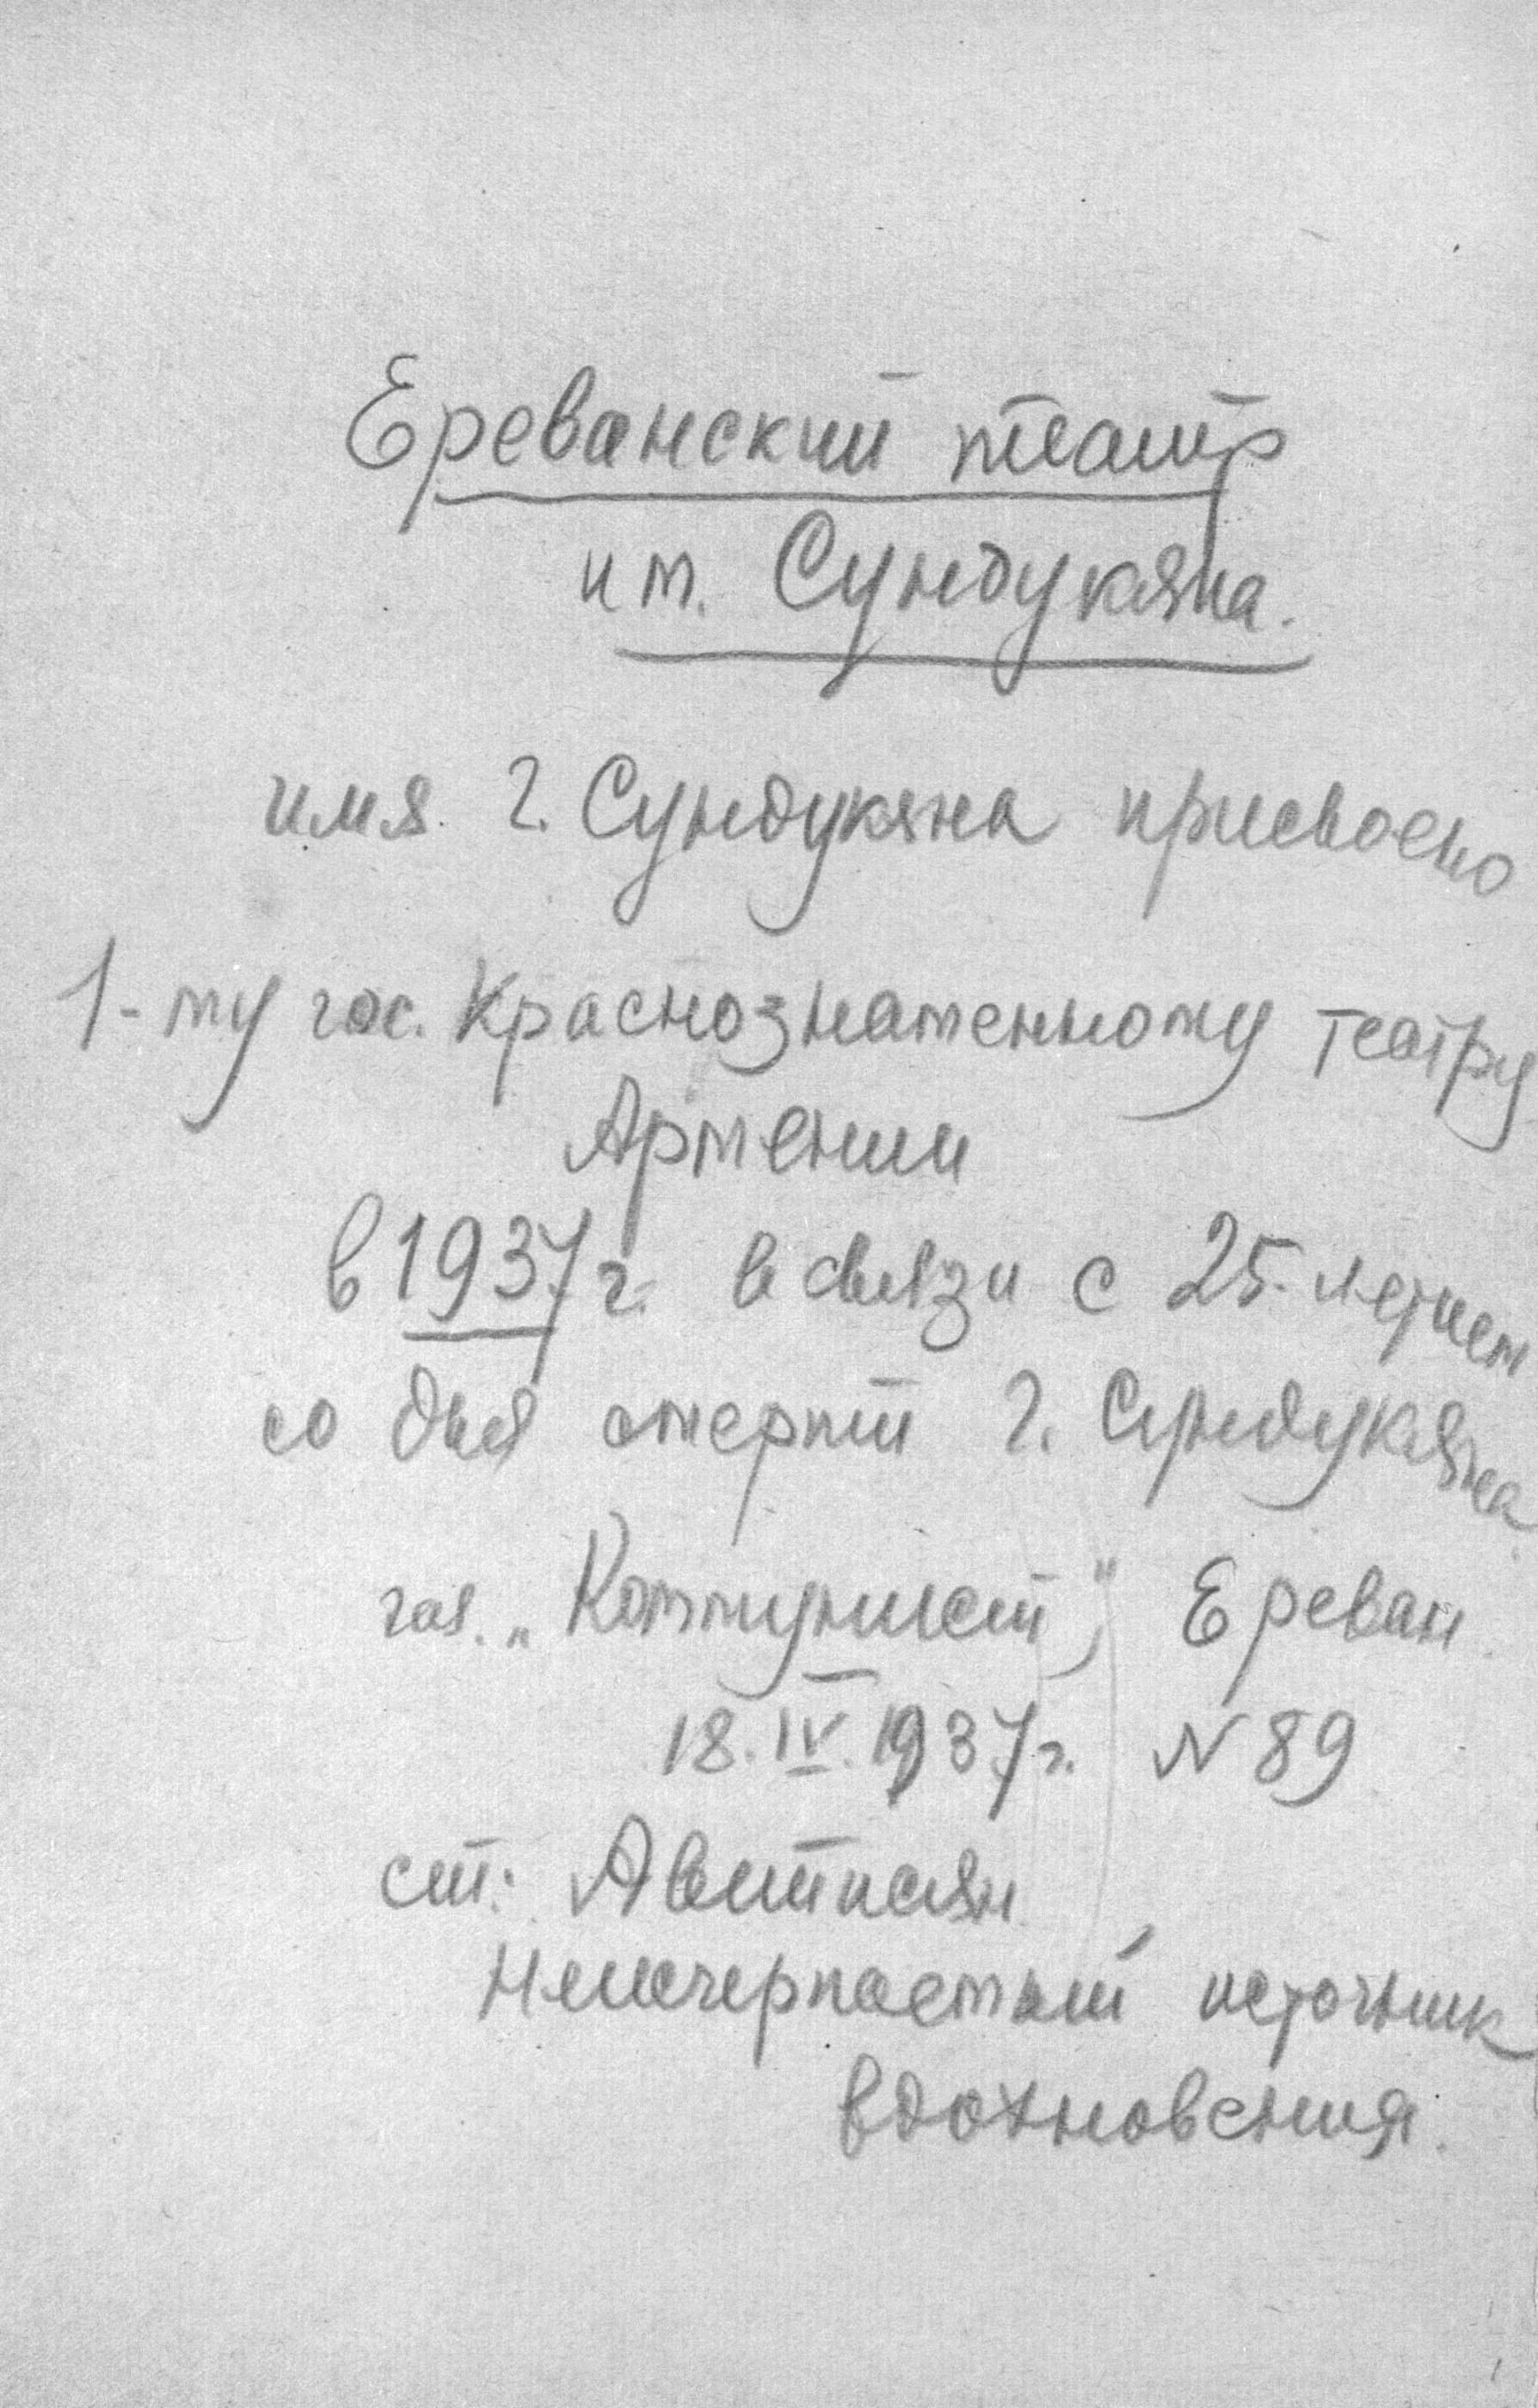 Ереванский театр
им. Сундукяна.
имя Г. Сундукяна присвоено
1-му гос. Краснознаменному театру
Армении
в 1937 г. в связи с 25-летием
со дня смерти Г. Сундукяна
газ. „Коммунист", Ереван
18.IV.1937 г. N 89
ст: Аветисян
Неисчерпаемый источник
вдохновения.